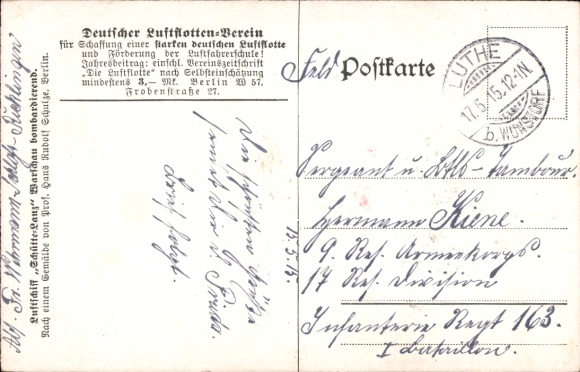 Deutscher Luftflotten-Verein
für Schaffung einer starken deutschen Luftflotte
und Förderung der Luftfahrerschule!
Jahresbeitrag: einschl. Vereinszeitschrift
"Die Luftflotte" nach Selbsteinschätzung
mindestens 3,— Mk. Berlin W 57.
Frobenstraße 27.
Feld Postkarte
LUTHE
17.5.15.12-1N
b. WUNSTORF
Sergeant u. Btls-Tambour.
Hermann Kiene.
9. Res. Armeekorps.
17 Res. Division
Infanterie Regt 163.
I Bataillon.
Die schönsten Grüße
sendet Dir d.
Brief folgt.
17.5.15.
Abs. Fr. Wihrmann
Luftschiff „Schütte-Lanz" Warschau bombardierend.
Nach einem Gemälde von Prof. Hans Rudolf Schulze, Berlin.